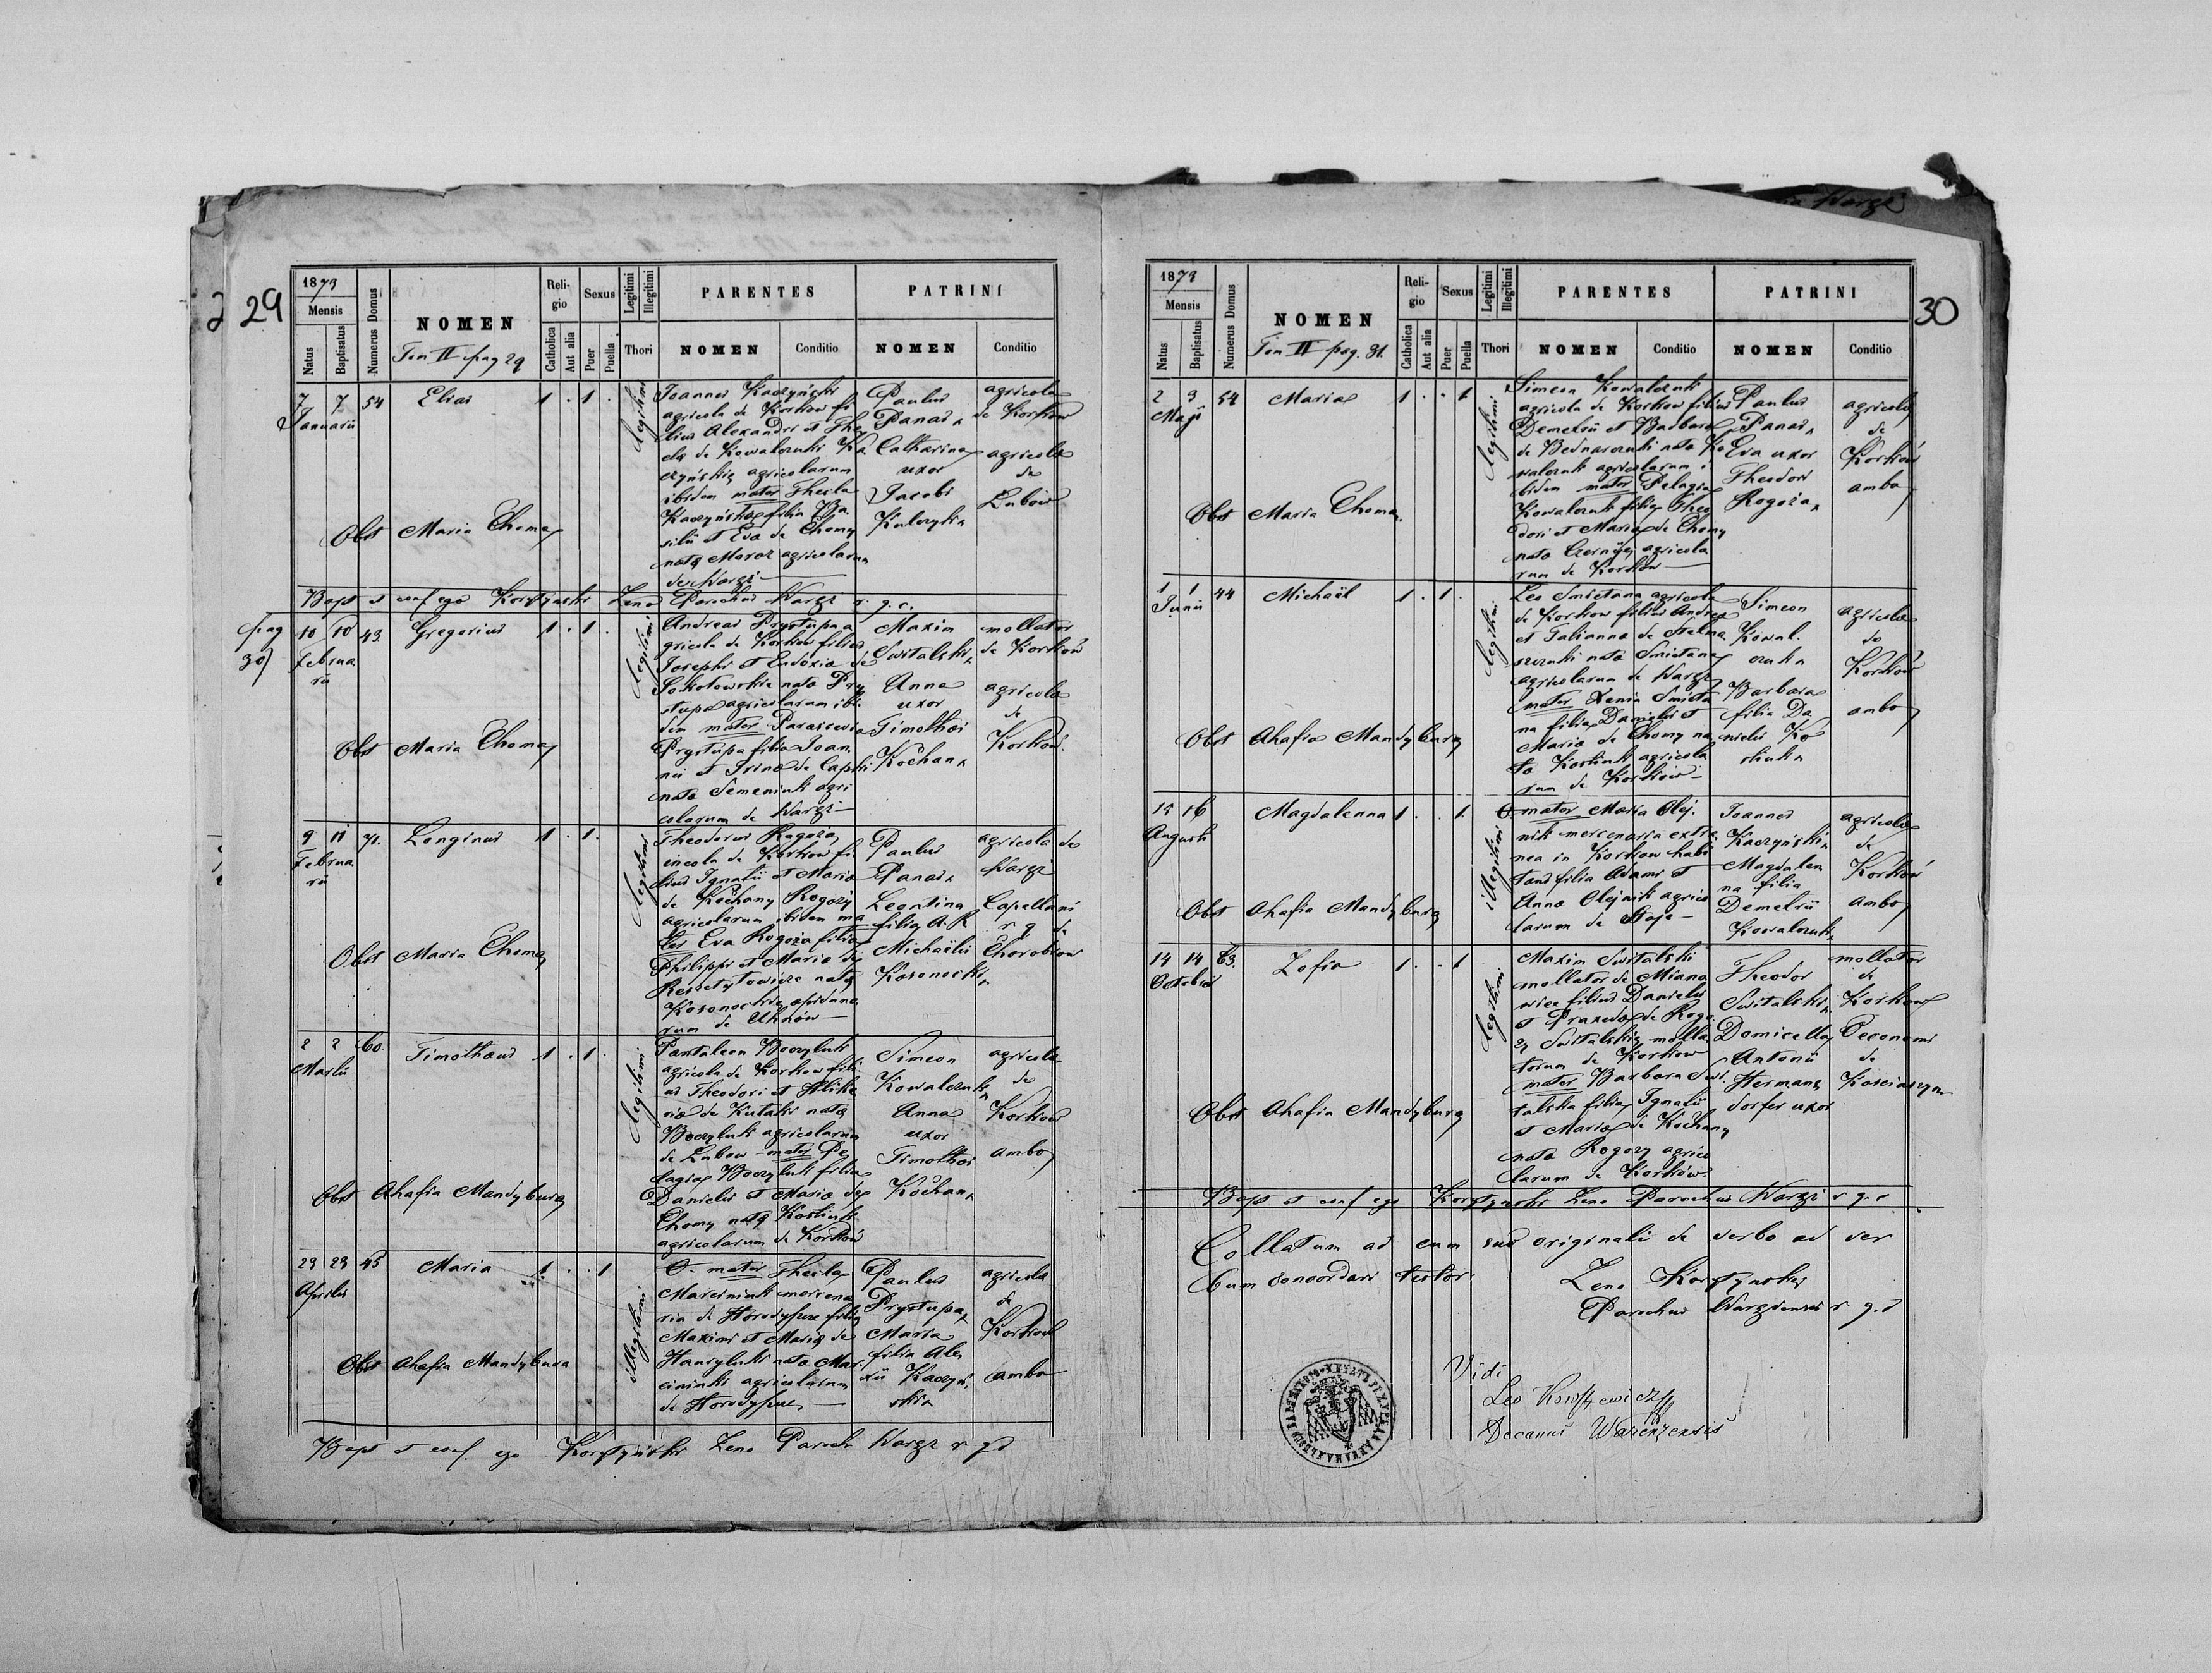 29
1873
Mensis
Natus
Baptisatus
Numerus Domus
NOMEN
Tom II pag 29
Religio
Catholica
Aut alia
Sexus
Puer
Puella
Legitimi
Illegitimi
Thori
PARENTES
NOMEN
Conditio
PATRINI
NOMEN
Conditio
7 7 54 Elias 1 . 1 .
Januarii
Legitimi
Joannes Kaczyński
agricola de Korkow fi
lius Alexandri et The
cla de Kowalczuki Ka
czyńskie agricolarum
ibidem mater Thecla
Kaczyńska filia Ba
silii et Eva de Chomy
nata Moroz agricolarum
de Waręż
Paulus
Panas
Catharina
uxor
Jacobi
Kulczyk
agricola
de Korkow
agricola
de
Lubow
Obst Maria Choma
Bapt et conf ego Korstynski Zeno Parochus Waręż r. g. c.
pag
30
10 10 43 Gregorius 1 . 1 .
Februa
rii
Legitimi
Andreas Prystupa a
gricola de Korkow filius
Josephi et Eudoxia de
Sokołowskie nata Pry
stupa agricolarum ibi
dem mater Parascevia
Prystupa filia Joan
nis et Irina de Capki
nata Semeniuk agri
colarum de Waręż
Maxim
Switalski
Anna
uxor
Timothei
Kochan
mollator
de Korków
agricola
de
Korków
Obst Maria Choma
9 11 71. Longinus 1 . 1 .
Februa
rii
Legitimi
Theodorus Rogoża
incola de Korkow fi
lius Ignatii et Maria
de Kochany Rogoży
agricolarum ibidem ma
ter Eva Rogoża filia
Philippi et Maria de
Reszetyłowicze nata
Kosonocki oppidano
rum de Uhnów
Paulus
Panas
Leontina
filia A. R.
Michaelis
Kosonocki
agricola de
Waręż
Capellani
r g de
Chorobrow
Obst Maria Choma
2 2 60. Timotheus 1 . 1 .
Martii
Legitimi
Pantaleon Boczyluk
agricola de Korkow fili
us Theodori et
de Kutaki nata
Boczyluk agricolarum
de Lubow mater Pe
lagia Boczyluk filia
Danielis et Maria de
Chomy nata Kostiuk
agricolarum de Korków
Simeon
Kowalczuk
Anna
uxor
Timothei
Kochan
agricola
de
Korków
ambo
Obst Ahafia Mandybura
23 23 45 Maria 1 . . 1
Aprilis
Illegitimi
O. mater Thecla
Marciniuk mercena
ria de Horodyszcze filia
Maximi et Maria de
Hawryluki nata Mar
ciniuk agricolarum
de Horodyszcze
Paulus
Prystupa
Maria
filia Ale
xii Kaczyń
ski
agricola
de
Korków
ambo
Obst Ahafia Mandybura
Bapt et conf. ego Korstyński Zeno Paroch Waręż r g c
30
1873
Mensis
Natus
Baptisatus
Numerus Domus
NOMEN
Tom II pag. 31.
Religio
Catholica
Aut alia
Sexus
Puer
Puella
Legitimi
Illegitimi
Thori
PARENTES
NOMEN
Conditio
PATRINI
NOMEN
Conditio
2 3 54 Maria 1 . . 1
Maji
Legitimi
Simeon Kowalczuk
agricola de Korkow filius
Demetrii et Barbara
de Bednarczuki nata Ko
walczuk agricolarum i
bidem mater Pelagia
Kowalczuk filia Theo
dori et Maria de Chomy
nata Czernij agricola
rum de Korkow
Paulus
Panas
Eva uxor
Theodori
Rogoża
agricola
de
Korków
ambo
Obst Maria Choma
1 1 44 Michaël 1 . 1 .
Junii
Legitimi
Leo Smietana agricola
de Korkow filius Andrea
et Julianna de Stelma
szczuki nata Smietana
agricolarum de Waręż
mater Xenia Smieta
na filia Danielis et
Maria de Chomy na
ta Kostiuk agricola
rum de Korkow
Simeon
Kowal
czuk
Barbara
filia Da
nielis Ko
stiuk
agricola
de
Korków
ambo
Obst Ahafia Mandybura
15 16 Magdalenna 1 . . 1
Augusti
illegitimi
O mater Maria Olej
nik mercenaria extra
nea in Korkow habi
tans filia Adami et
Anna Olejnik agrico
larum de Staje
Joannes
Kaczyński
Magdalen
na filia
Demetrii
Kowalczuk
agricola
de
Korków
ambo
Obst Ahafia Mandybura
14 14 63. Zofia 1 . . 1
Octobris
Legitimi
Maxim Switalski
mollator de Miano
wice filius Danielis
et Praxeda de Rogo
zy Switalski molla
torum de Korkow
mater Barbara Swi
talska filia Ignatii
et Maria de Kochany
nata Rogozy agrico
larum de Korków
Theodor
Switalski
Domicella
Antonii
Hermans
dorfer uxor
mollator
de
Korkow
Oeconomi
de
Kosciaszyn
Obst Ahafia Mandybura
Bapt et conf ego Korstynski Zeno Parochus Waręż r g. c
Collatum ad cum suo originali de verbo ad ver
bum concordari testor
Zeno Korstynski
Parochus Waręzensis r g. c
Vidi
Leo
Decanus Warenzensis